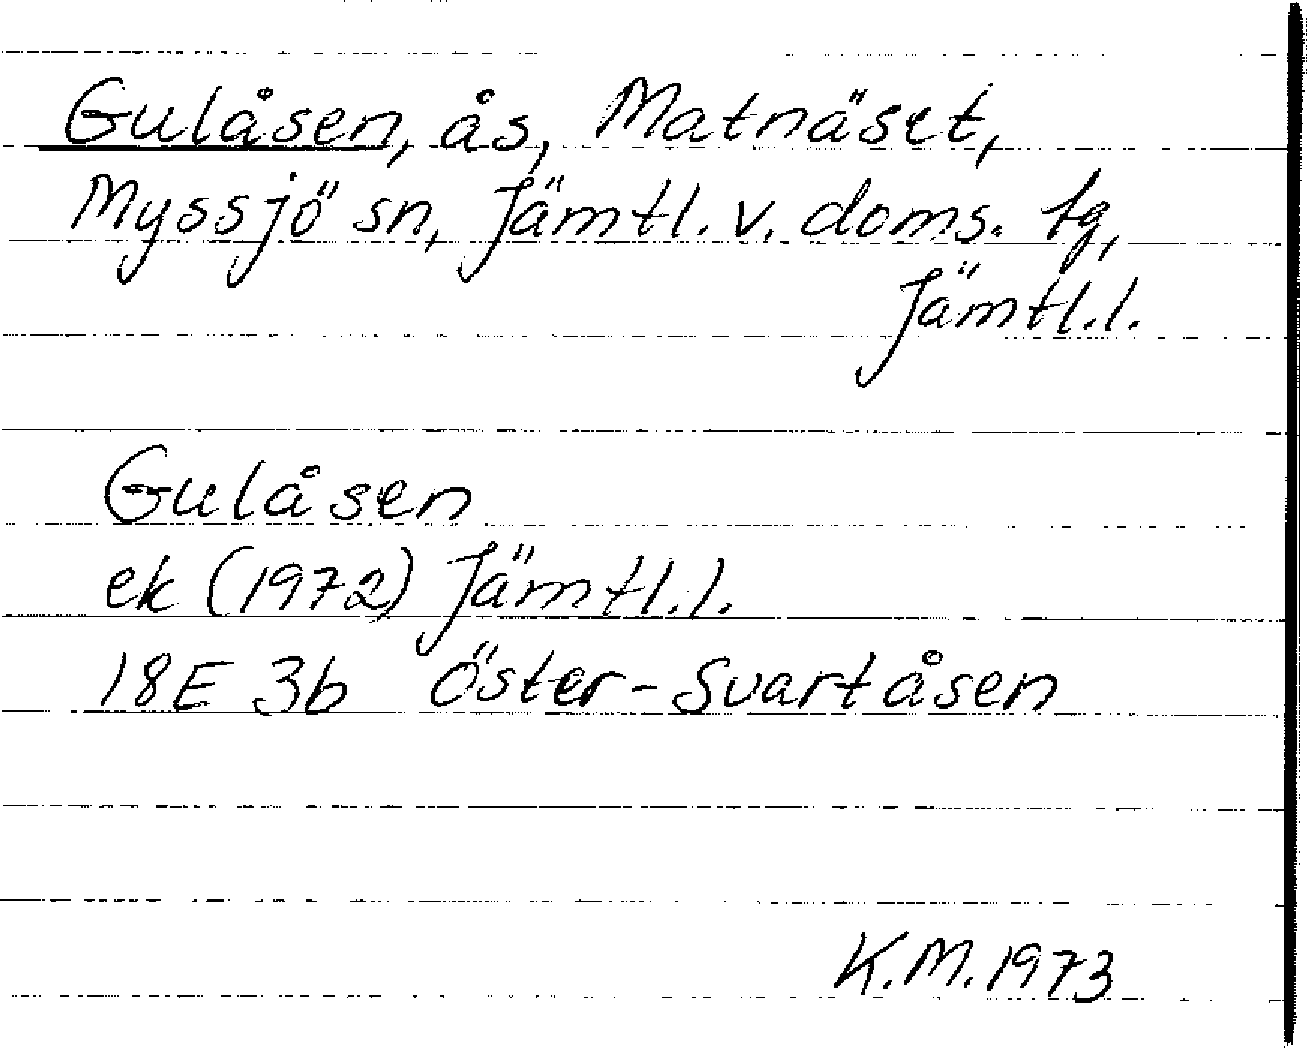 Gulåsen, ås, Matnäset,
Myssjö sn, Jämtl. v. doms. tg,
Jämtl. l.
Gulåsen
ek (1972) Jämtl. l.
18E 3b Öster-Svartåsen
K.M. 1973